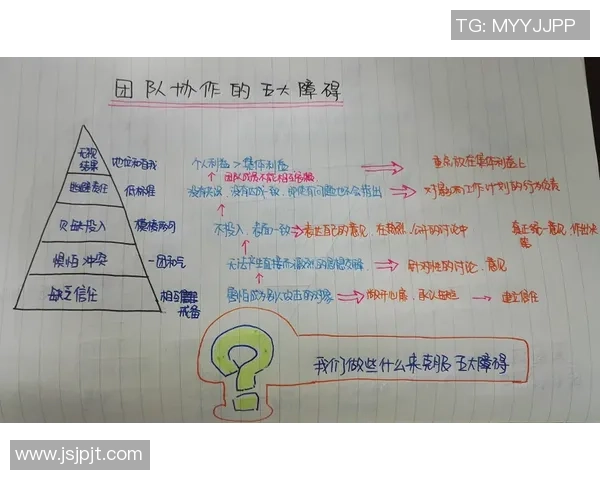 TG: MYYJJPP
团队协作的五大障碍
无视结果 地位和自我 个人利益 > 集体利益 重点放在集体利益上
团队成员不能相互
逃避责任 低标准 没有达成一致，即使有问题也不会指出
欠缺投入 模棱两可 不投入，表面一致 表达自己的意见，在 公开的讨论中 真正统一意见，作出决策
惧怕冲突 一团和气 无法产生直接而激烈的思想交锋 针对性的讨论、意见
缺乏信任 相互 戒备 害怕成为别人攻击的对象 敞开心扉，承认 建立信任
我们做些什么来克服五大障碍
www.jsjpjt.com